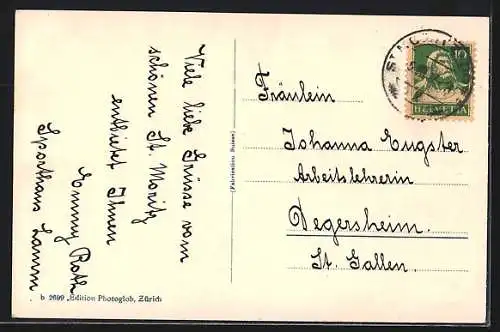 Viele liebe Grüsse vom
schönen St. Moritz
entbietet Ihnen
Emmy Roth
Sporthaus Lamm
Fräulein
Johanna Eugster
Arbeitslehrerin
Degersheim
St. Gallen.
(Fabrication Suisse)
b 2699 „Edition Photoglob, Zürich
10
HELVETIA